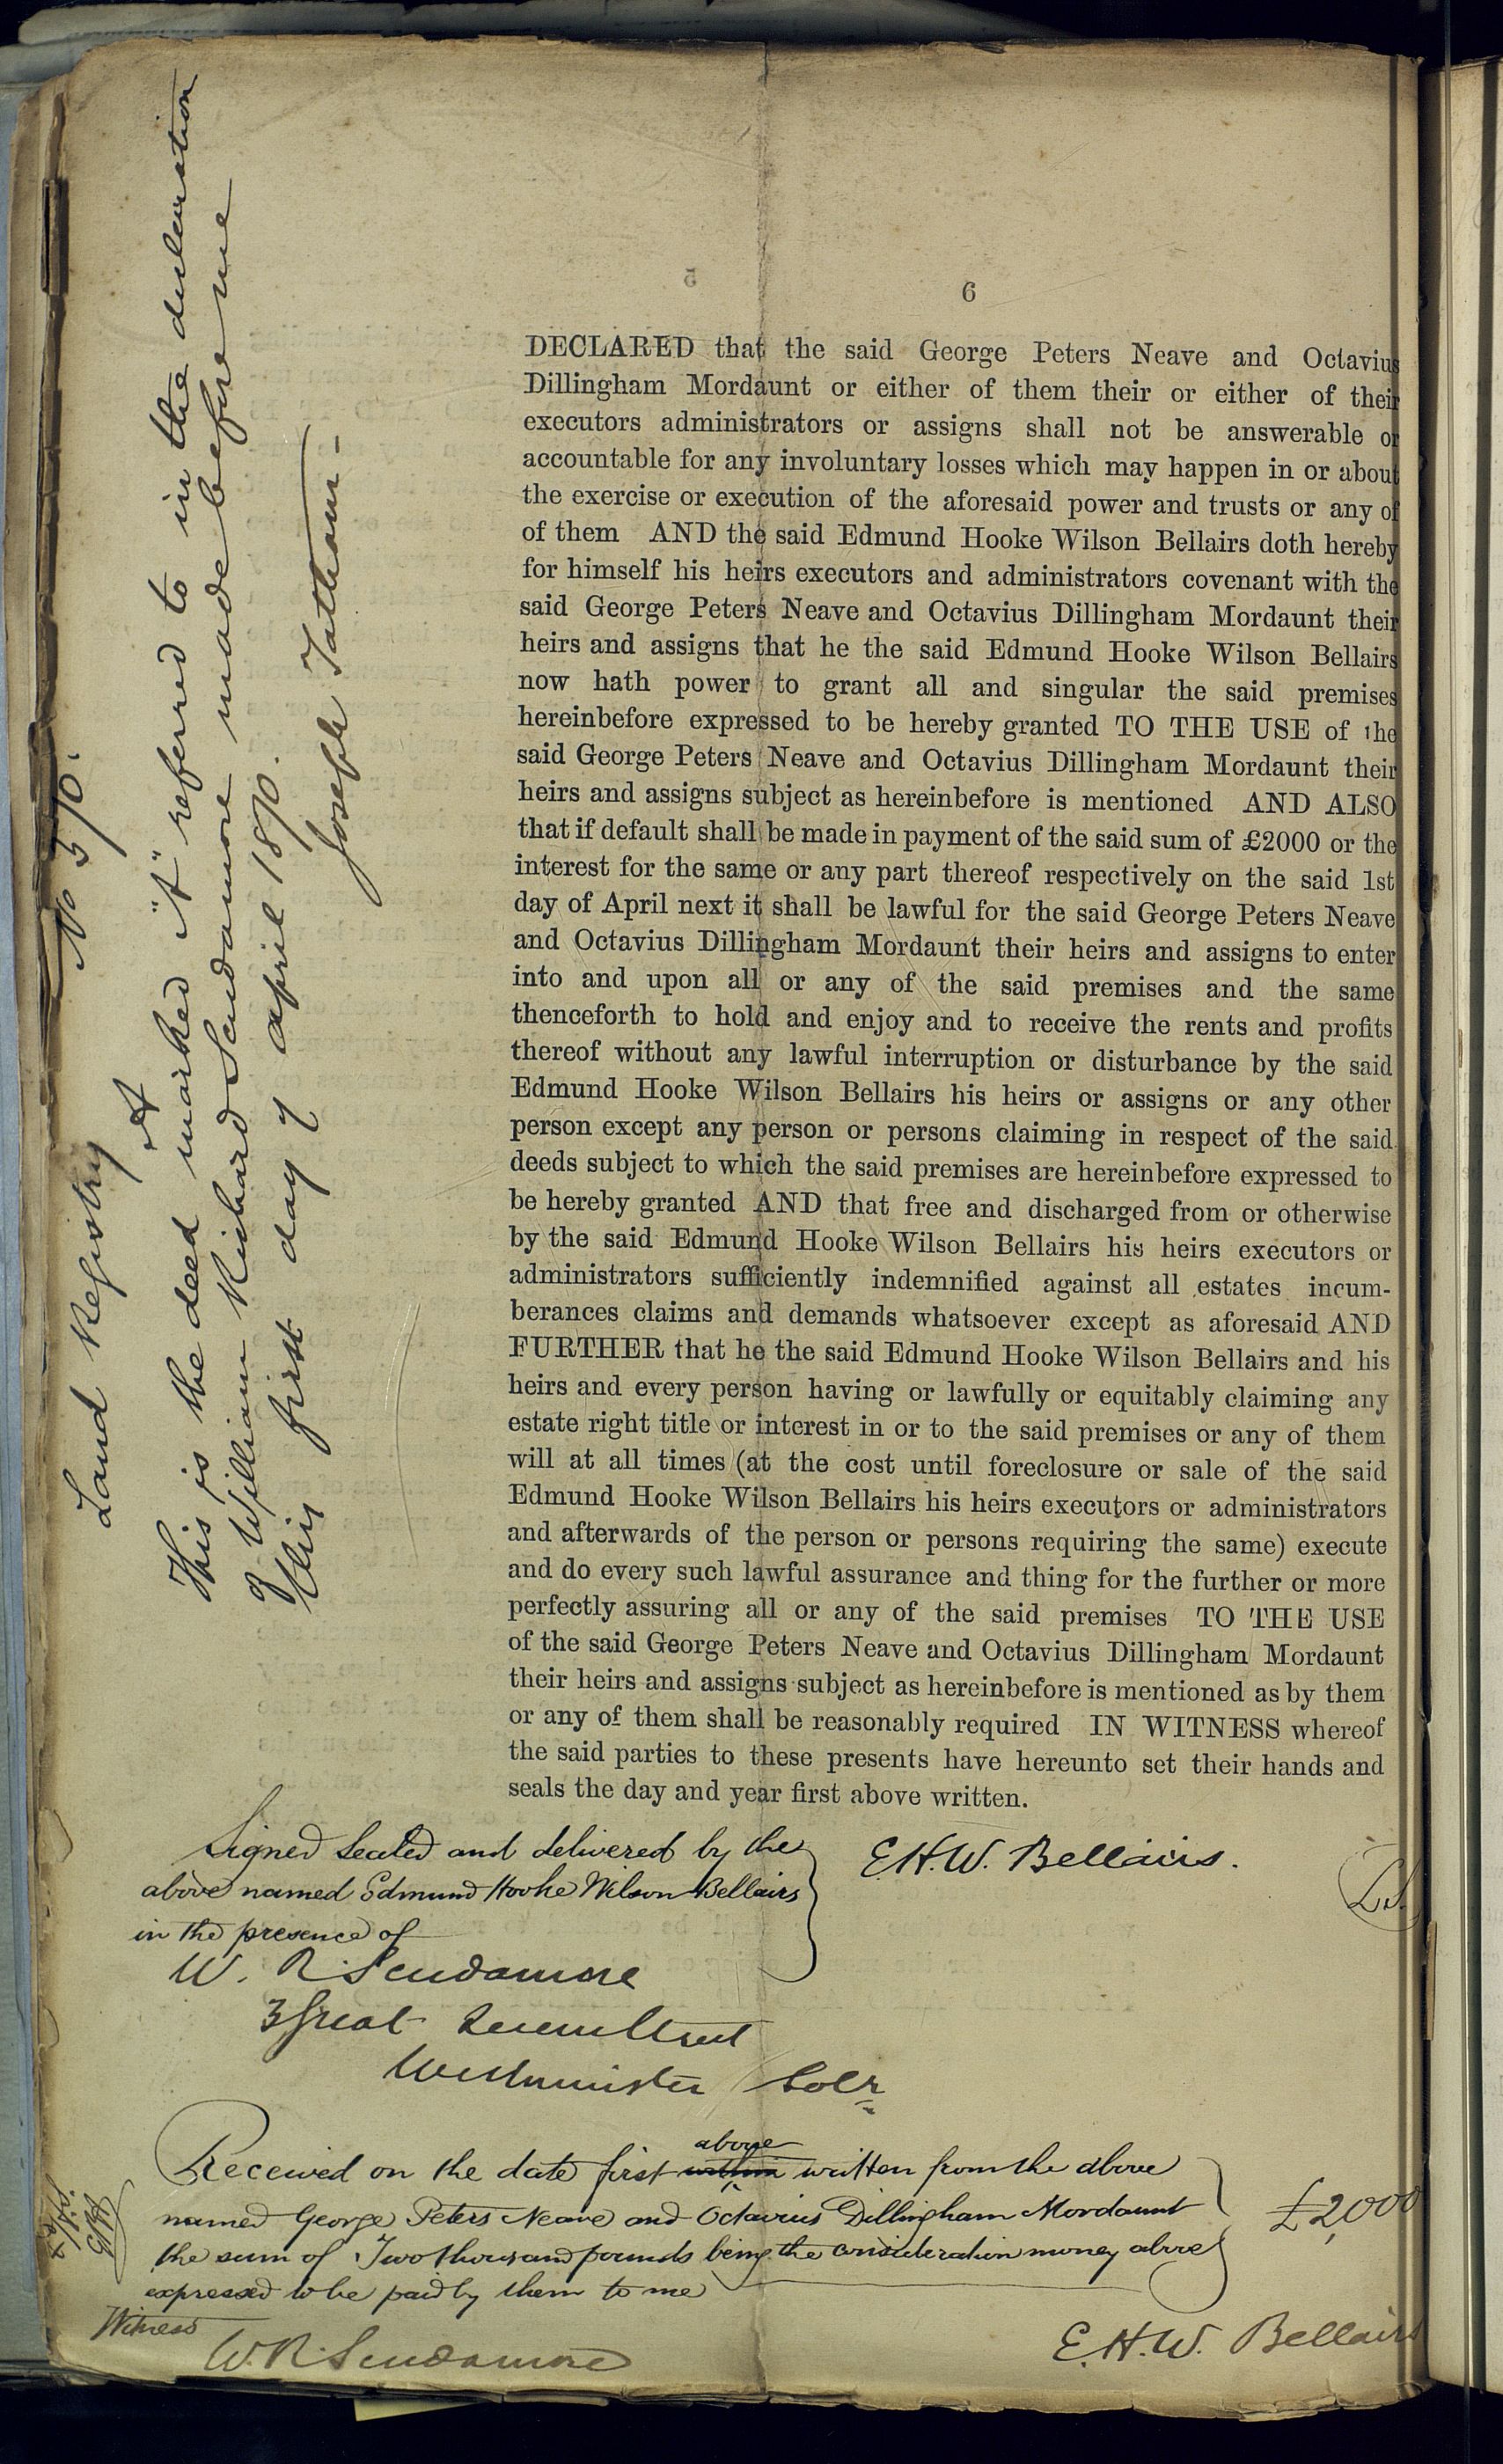 6
DECLARED that the said George Peters Neave and Octavius
Dillingham Mordaunt or either of them their or either of their
executors administrators or assigns shall not be answerable or
accountable for any involuntary losses which may happen in or about
the exercise or execution of the aforesaid power and trusts or any of
of them AND the said Edmund Hooke Wilson Bellairs doth hereby
for himself his heirs executors and administrators covenant with the
said George Peters Neave and Octavius Dillingham Mordaunt their
heirs and assigns that he the said Edmund Hooke Wilson Bellairs
now hath power to grant all and singular the said premises
hereinbefore expressed to be hereby granted TO THE USE of the
said George Peters Neave and Octavius Dillingham Mordaunt their
heirs and assigns subject as hereinbefore is mentioned AND ALSO
that if default shall be made in payment of the said sum of £2000 or the
interest for the same or any part thereof respectively on the said 1st
day of April next it shall be lawful for the said George Peters Neave
and Octavius Dillingham Mordaunt their heirs and assigns to enter
into and upon all or any of the said premises and the same
thenceforth to hold and enjoy and to receive the rents and profits
thereof without any lawful interruption or disturbance by the said
Edmund Hooke Wilson Bellairs his heirs or assigns or any other
person except any person or persons claiming in respect of the said
deeds subject to which the said premises are hereinbefore expressed to
be hereby granted AND that free and discharged from or otherwise
by the said Edmund Hooke Wilson Bellairs his heirs executors or
administrators sufficiently indemnified against all estates incum-
berances claims and demands whatsoever except as aforesaid AND
FURTHER that he the said Edmund Hooke Wilson Bellairs and his
heirs and every person having or lawfully or equitably claiming any
estate right title or interest in or to the said premises or any of them
will at all times (at the cost until foreclosure or sale of the said
Edmund Hooke Wilson Bellairs his heirs executors or administrators
and afterwards of the person or persons requiring the same) execute
and do every such lawful assurance and thing for the further or more
perfectly assuring all or any of the said premises TO THE USE
of the said George Peters Neave and Octavius Dillingham Mordaunt
their heirs and assigns subject as hereinbefore is mentioned as by them
or any of them shall be reasonably required IN WITNESS whereof
the said parties to these presents have hereunto set their hands and
seals the day and year first above written.
Signed Sealed and delivered by the
above named Edmund Hooke Wilson Bellairs
in the presence of
E.H.W. Bellairs.
L.S.
W. R. Scudamore
3 Great Queen Street
Westminster Solr
Received on the date first within above written from the above
named George Peters Neave and Octavius Dillingham Mordaunt
the sum of Two thousand pounds being the consideration money above
expressed to be paid by them to me
£2,000
Witness
W.R. Scudamore
E.H.W. Bellairs
Land Registry No 570.
"A"
This is the deed marked "A" referred to in the declaration
of William Richard Scudamore made before me
this first day of April 1870.
Joseph Tatham -